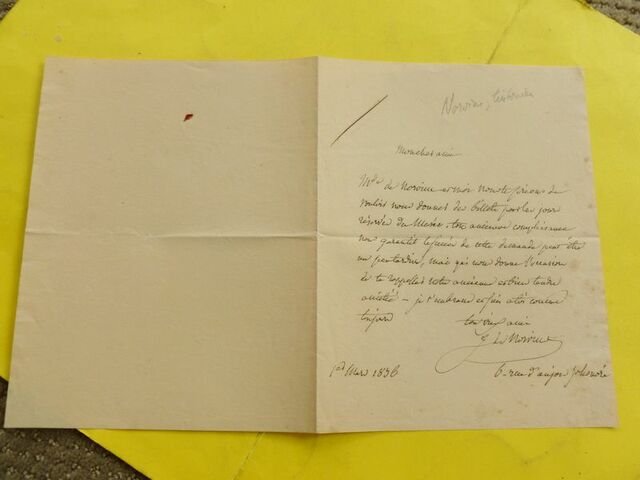 Norvins, historien
Mon cher ami
Mde de Norvins et moi nous te prions de
vouloir nous donner des billets pour les jours
réservés du Musée. ton ancienne complaisance
nous garantit le succès de cette demande peut être
un peu tardive, mais qui nous donne l'occasion
de te rappeller notre ancienne et bien tendre
amitié — je t'embrasse et suis à toi comme
toujours
ton vieil ami
J. de Norvins
1er Mars 1836
6. rue d'anjou St honoré